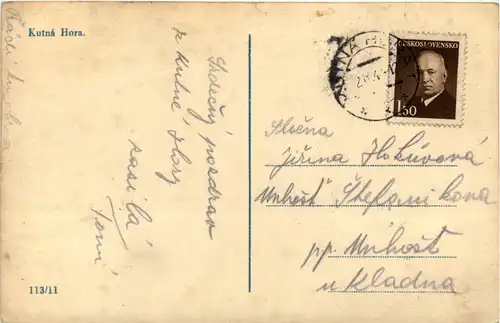 Kutná Hora.
Srdečný pozdrav
z Kutné Hory
zasílá
Toni
ČESKOSLOVENSKO
1,50
KUTNÁ HORA
Slečna
Jiřina
Unhošť Štefanikova
pp. Unhošť
u Kladna
113/11